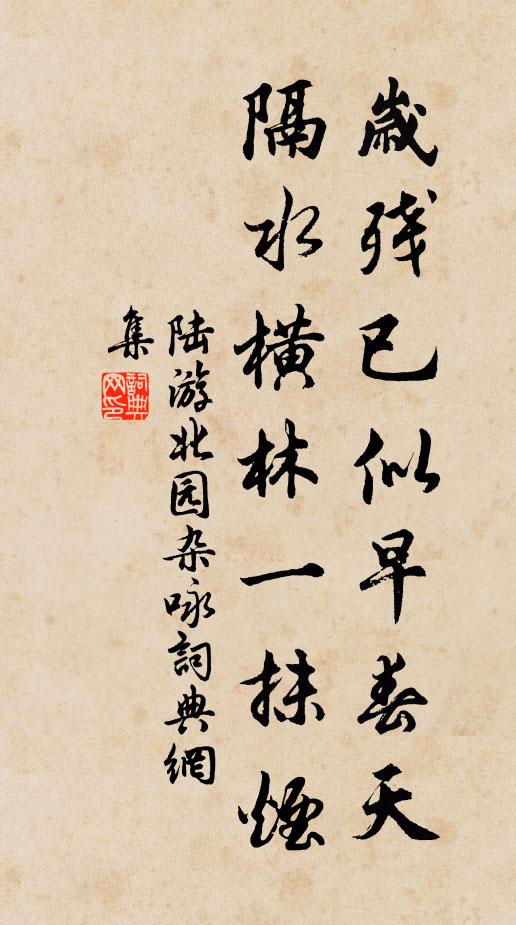 歲残已似早春天
隔水橫林一抹煙
陆游北园杂咏詞典網
集
詞典网印